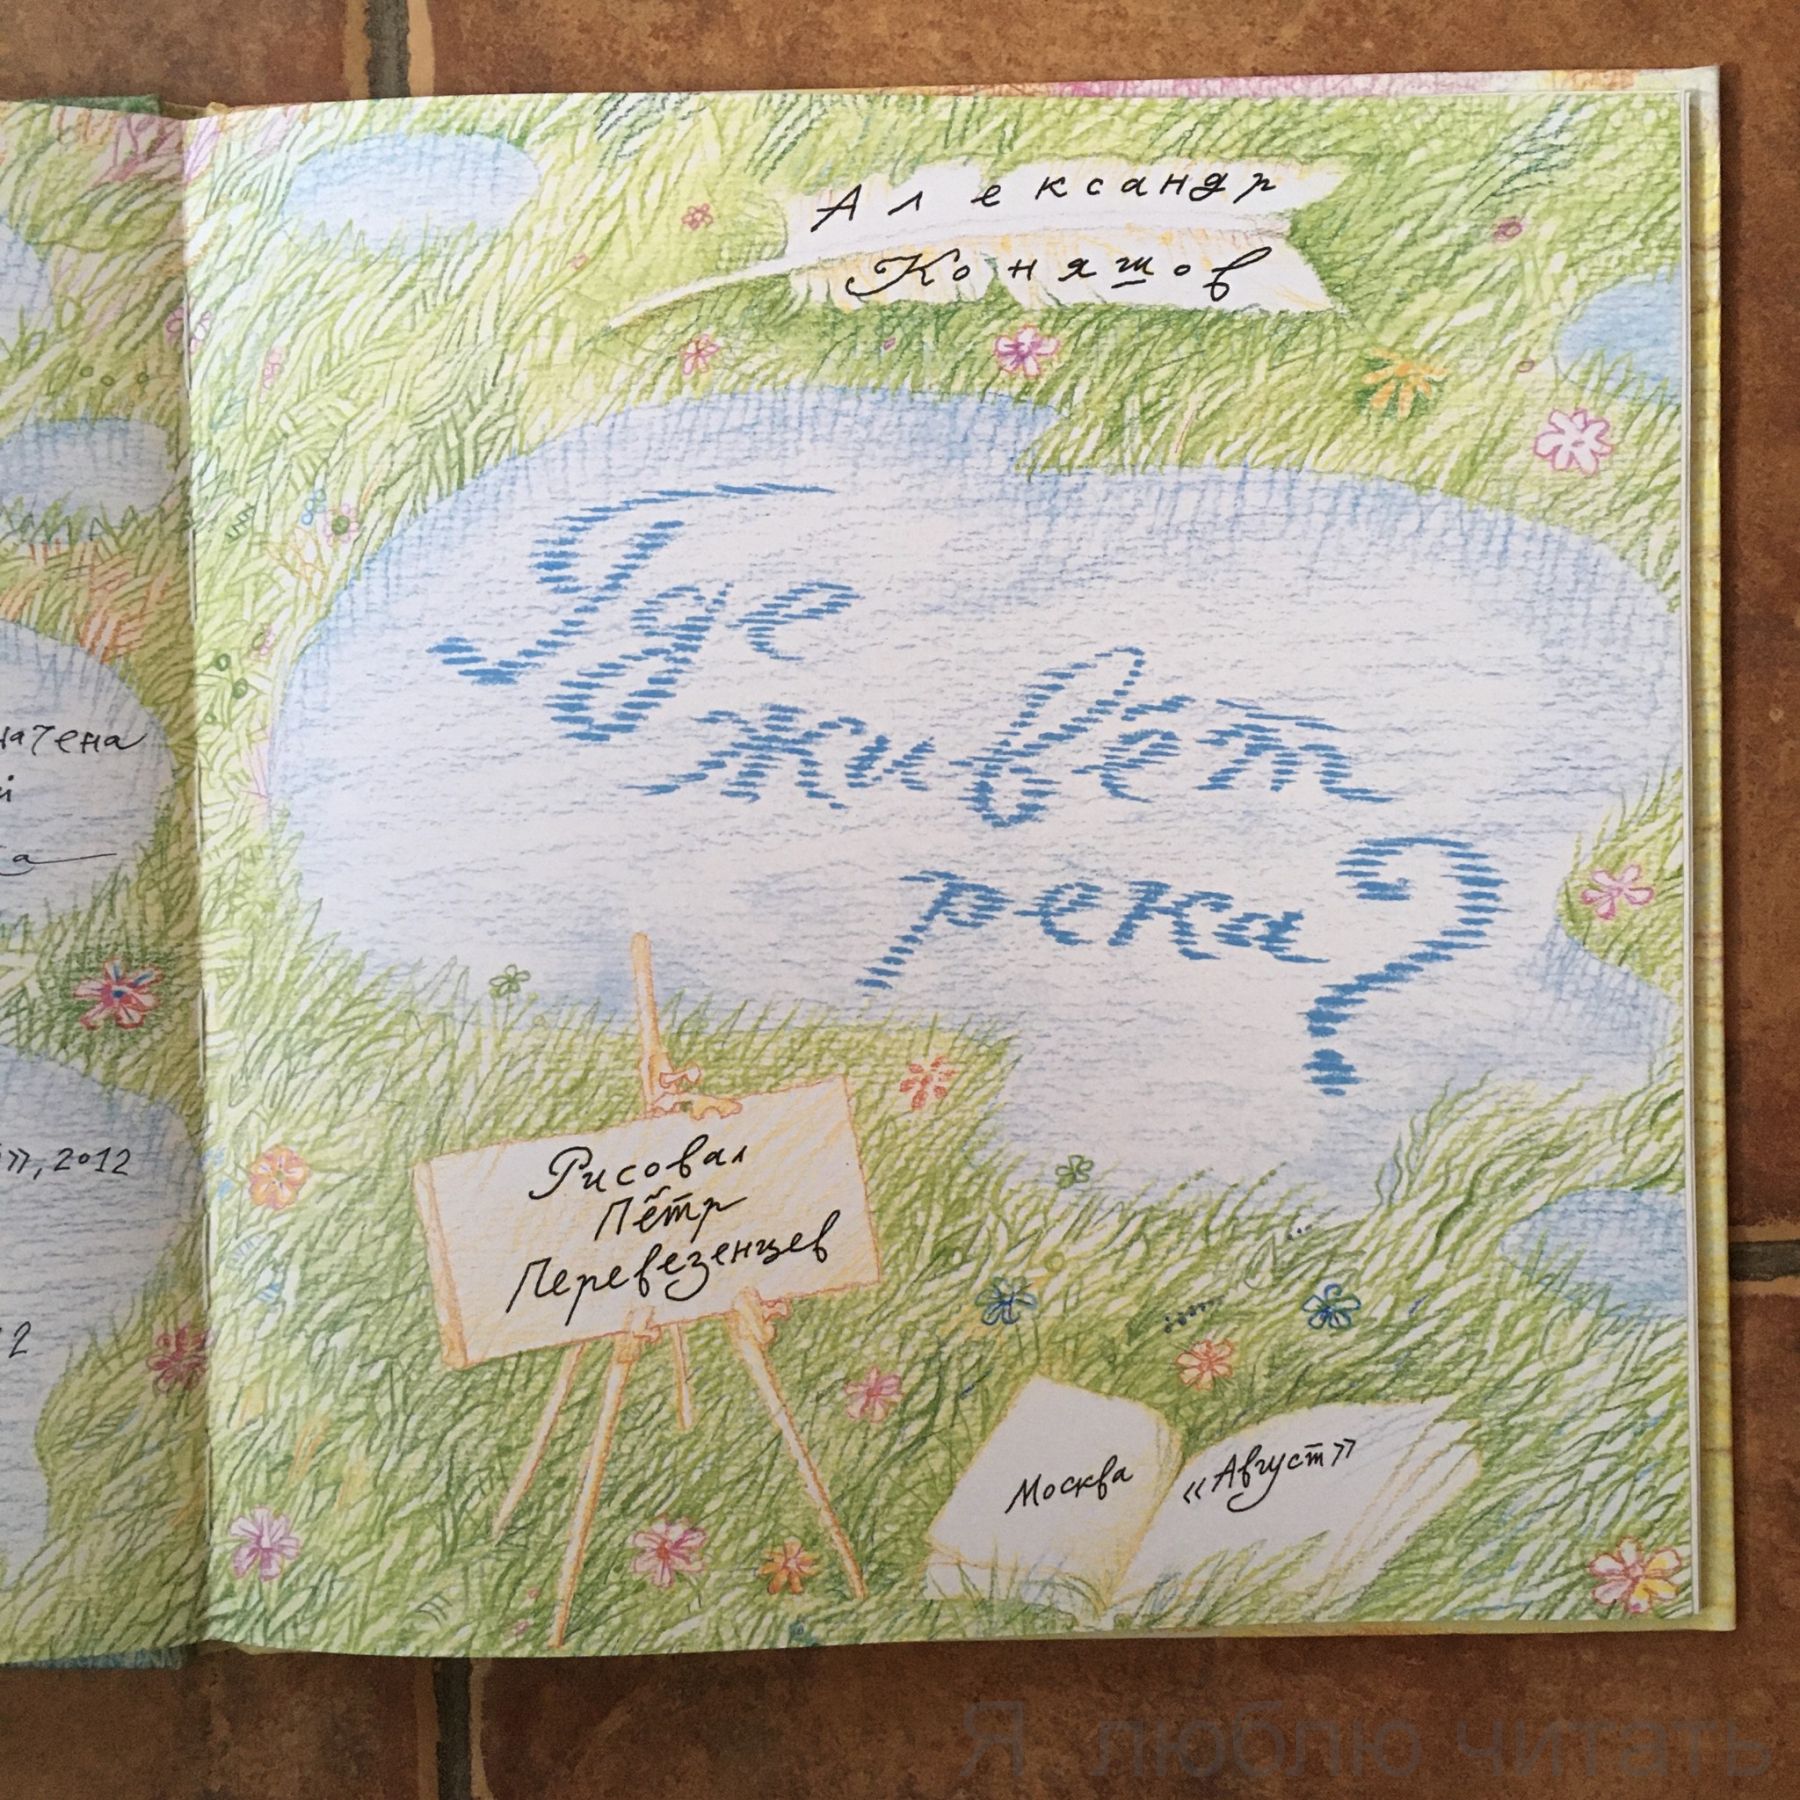 начена
й
»,2012
2
Александр
Коняшов
Где
живёт
река?
Рисовал
Пётр
Перевезенцев
Москва
«Август»
Я люблю читать